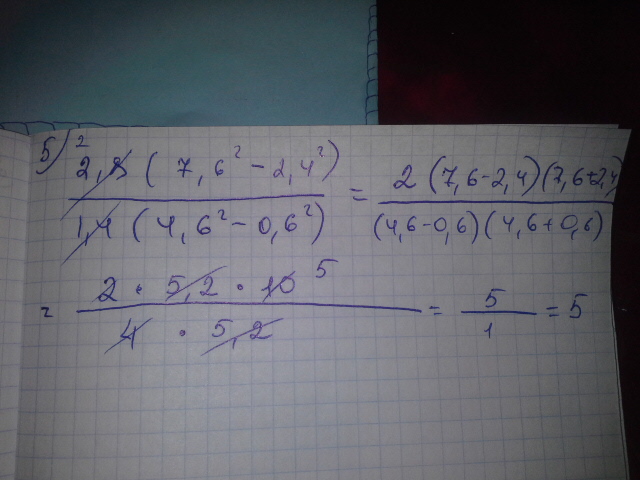 5) 2
2,8 ( 7,6² - 2,4² ) / 1,4 ( 4,6² - 0,6² ) = 2 (7,6-2,4)(7,6+2,4) / (4,6-0,6)(4,6+0,6)
= 2 · 5,2 · 10 5 / 4 · 5,2 = 5 / 1 = 5